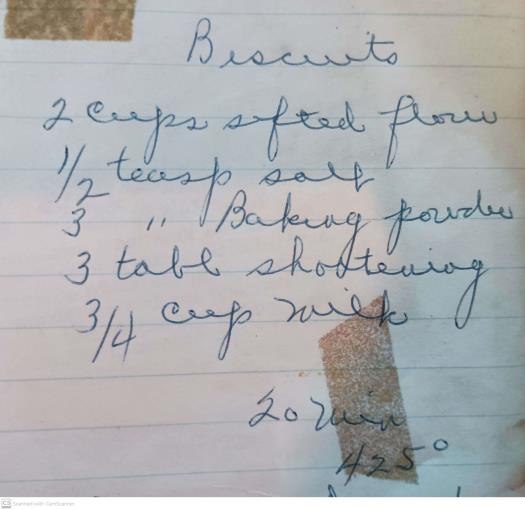 Biscuits
2 cups sifted flour
1/2 teasp salt
3 " Baking powder
3 tabl shortening
3/4 cup milk
20 min
425°
CS Scanned with CamScanner